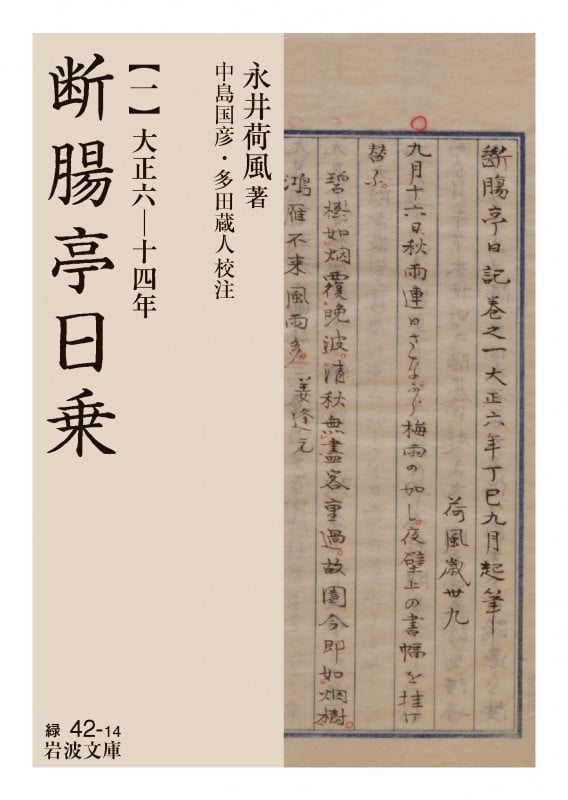 断腸亭日乗
【一】大正六―十四年
永井荷風 著
中島国彦・多田蔵人 校注
緑 42-14
岩波文庫
斷膓亭日記巻之一大正六年丁巳九月起筆
荷風歳卅九
九月十六日、秋雨連日さながら梅雨の如し。夜壁上の書幅を挂け
替ふ。
碧樹如烟覆晩波。清秋無盡客重過。故園今即如烟樹。
鴻雁不来風雨多。姜逢元